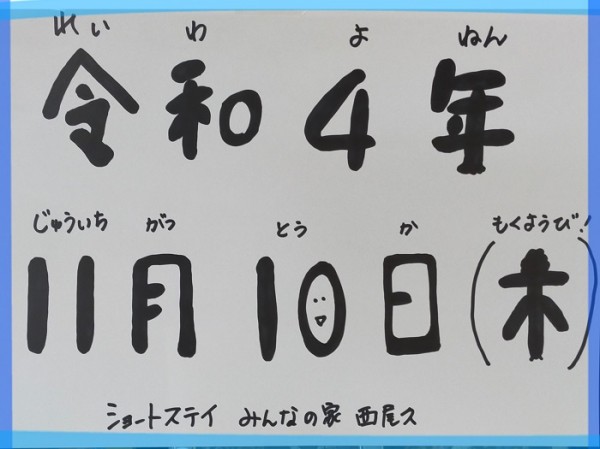 れい わ よ ねん
令和4年
じゅういち がつ とう か もくようび!
11月10日(木)
ショートステイ みんなの家 西尾久